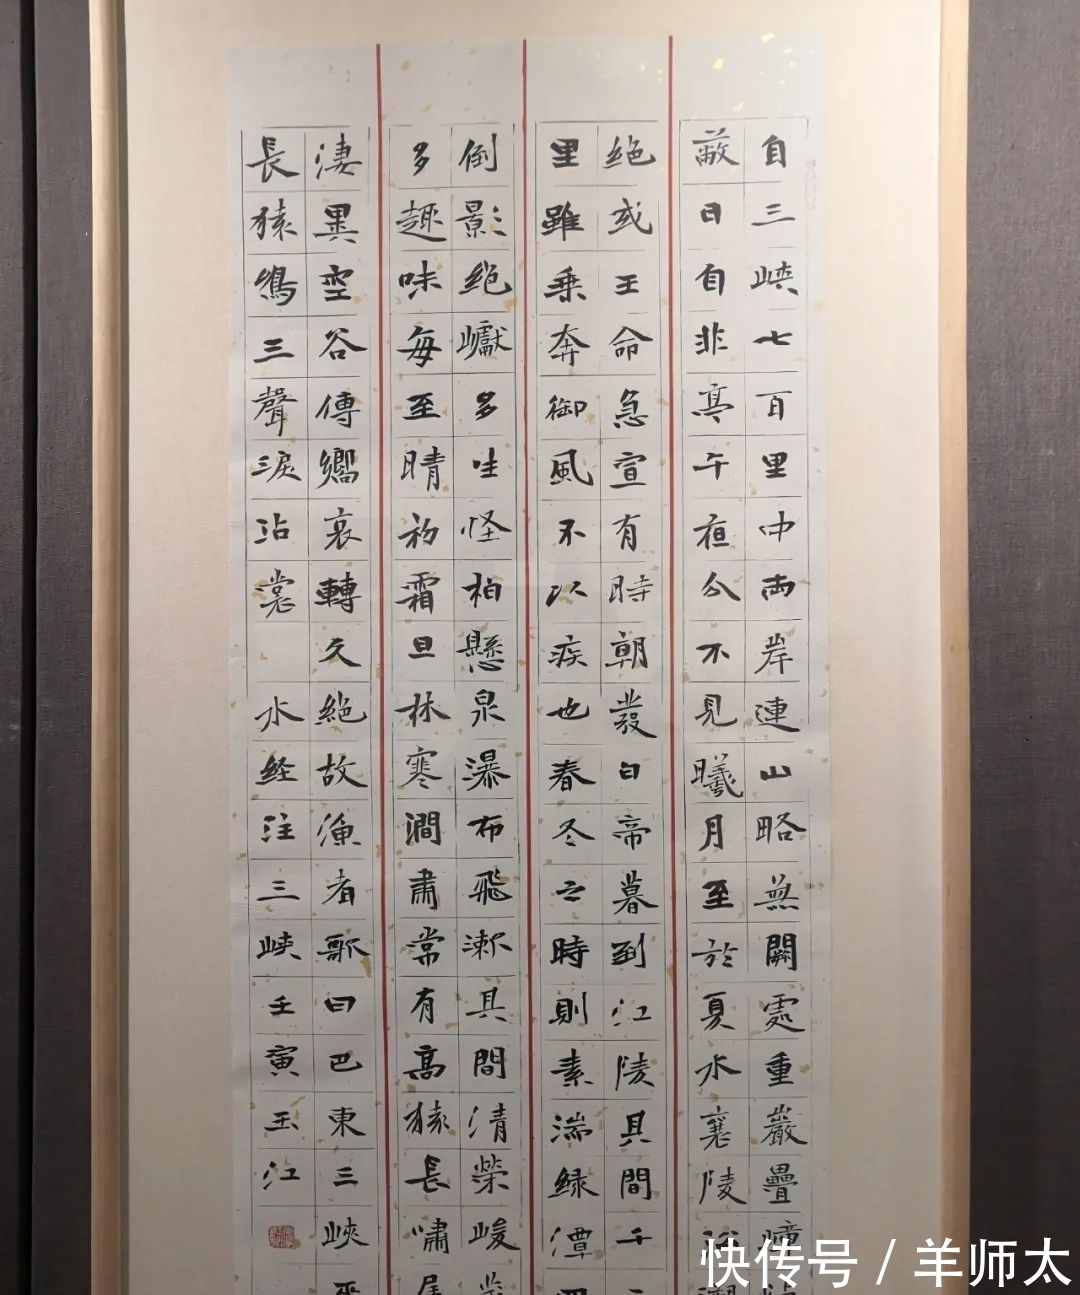 自三峽七百里中両岸連山略無闕處重巖疊嶂
蔽日自非亭午夜分不見曦月至於夏水襄陵
絕或王命急宣有時朝發白帝暮到江陵其間千
里雖乗奔御風不以疾也春冬之時則素湍緑潭
倒影絕巘多生怪柏懸泉瀑布飛漱其間清榮峻
多趣味每至晴初霜旦林寒澗肅常有高猿長嘯
淒異空谷傳嚮哀轉久絕故漁者歌曰巴東三峽
長猿鳴三聲淚沾裳 水經注三峽壬寅玉江
快传号 / 羊师太